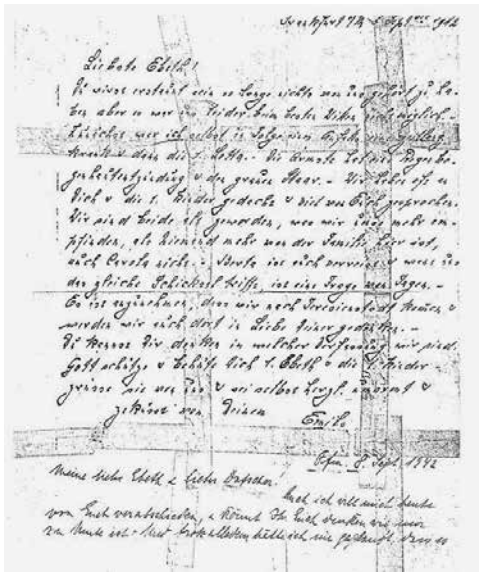 Frankfurt a/M, 5. Sept. 1942
Liebste Ebeth!
Du wirst erstaunt sein so lange nichts von uns gehört zu ha-
ben aber es war uns leider beim besten Willen nicht möglich. -
Zunächst war ich selbst in Folge eines
krank u. dann die l. Lotte. - Die Ärmste hat eine Regenbo-
genhautentzündung u. den grauen Staar. - Wir haben oft an
Dich u. die l. Kinder gedacht u. viel von Euch gesprochen.
Wir sind beide alt geworden, was wir umso mehr em-
pfinden, als Niemand mehr von der Familie hier ist,
auch Carola nicht. - Berta ist auch verreist u. wann uns
das gleiche Schicksal trifft, ist eine Frage von Tagen. -
Es ist anzunehmen, dass wir nach Theresienstadt kommen u.
werden wir auch dort in Liebe Deiner gedenken. -
Du kannst Dir denken in welcher Verfassung wir sind.
Gott schütze u. behüte Dich l. Ebeth u. die l. Kinder
grüsse sie von uns u. sei selbst herzl. umarmt u.
geküsst von Deinem
Emil
Ffm. 8. Sept. 1942
Meine liebe Ebeth u. liebe
Auch ich will mich heute
von Euch verabschieden, u. könnt Ihr Euch denken wie mir
zu Mute ist. trotz alledem hätte ich nie geglaubt, dass es